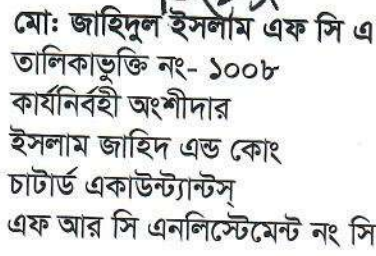 মো: জাহিদুল ইসলাম এফ সি এ
তালিকাভুক্তি নং- ১০০৮
কার্যনির্বহী অংশীদার
ইসলাম জাহিদ এন্ড কোং
চাটার্ড একাউন্ট্যান্টস্
এফ আর সি এনলিস্টেমেন্ট নং সি